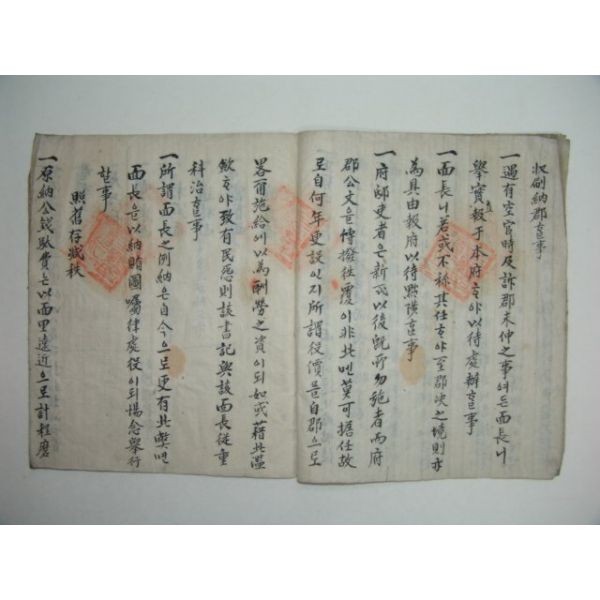 收刷納郡할事
一遇有空官時及訴郡未伸之事여든面長니
擧實報于本府하야以待處辦할事
一面長니若或不稱其任하야至郡決之境則亦
為具由報府以待黙陟할事
一府邸吏者은新式以後既所勿施者而府
郡公文을傳撥往覆이非此면莫可擔任故
로自何年更設인지所謂役價을自郡으로
畧爾施給에以為酬勞之資이되如或藉此濫
斂하야致有民怨則該書記與該面長從重
科治할事
一所謂面長之例納은自今으로更有此獘면
面長은以納賄圖囑律處役이되惕念擧行
할事
照舊存減秩
一原納公錢駄費는以面里遠近으로計程磨